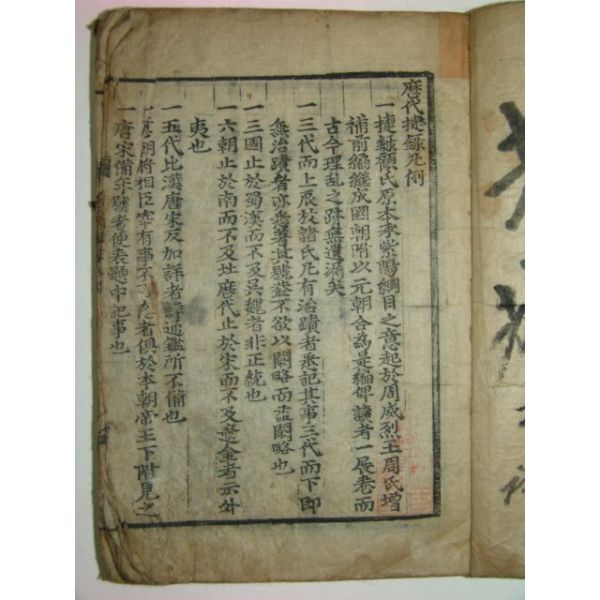 歷代捷錄凡例
一捷錄顧氏原本承紫陽綱目之意起於周威烈王周氏增
補前編繼成國朝附以元朝合為是編俾讀者一展卷而
古今理乱之跡無遺漏矣
一三代而上辰放諸氏凡有治蹟者悉記其事三代而下即
無治蹟者亦悉著其號盖不欲以闕略而盖闕略也
一三國止於蜀漢而不及吳魏者非正統也
一六朝止於南而不及北歷代止於宋而不及遼金者示外
夷也
一五代比漢唐宋反加詳者詳通鑑所不備也
一 朝將相臣宰有事不 者俱於本朝帝王下附見之
一唐宋備年號者便表題中記事也